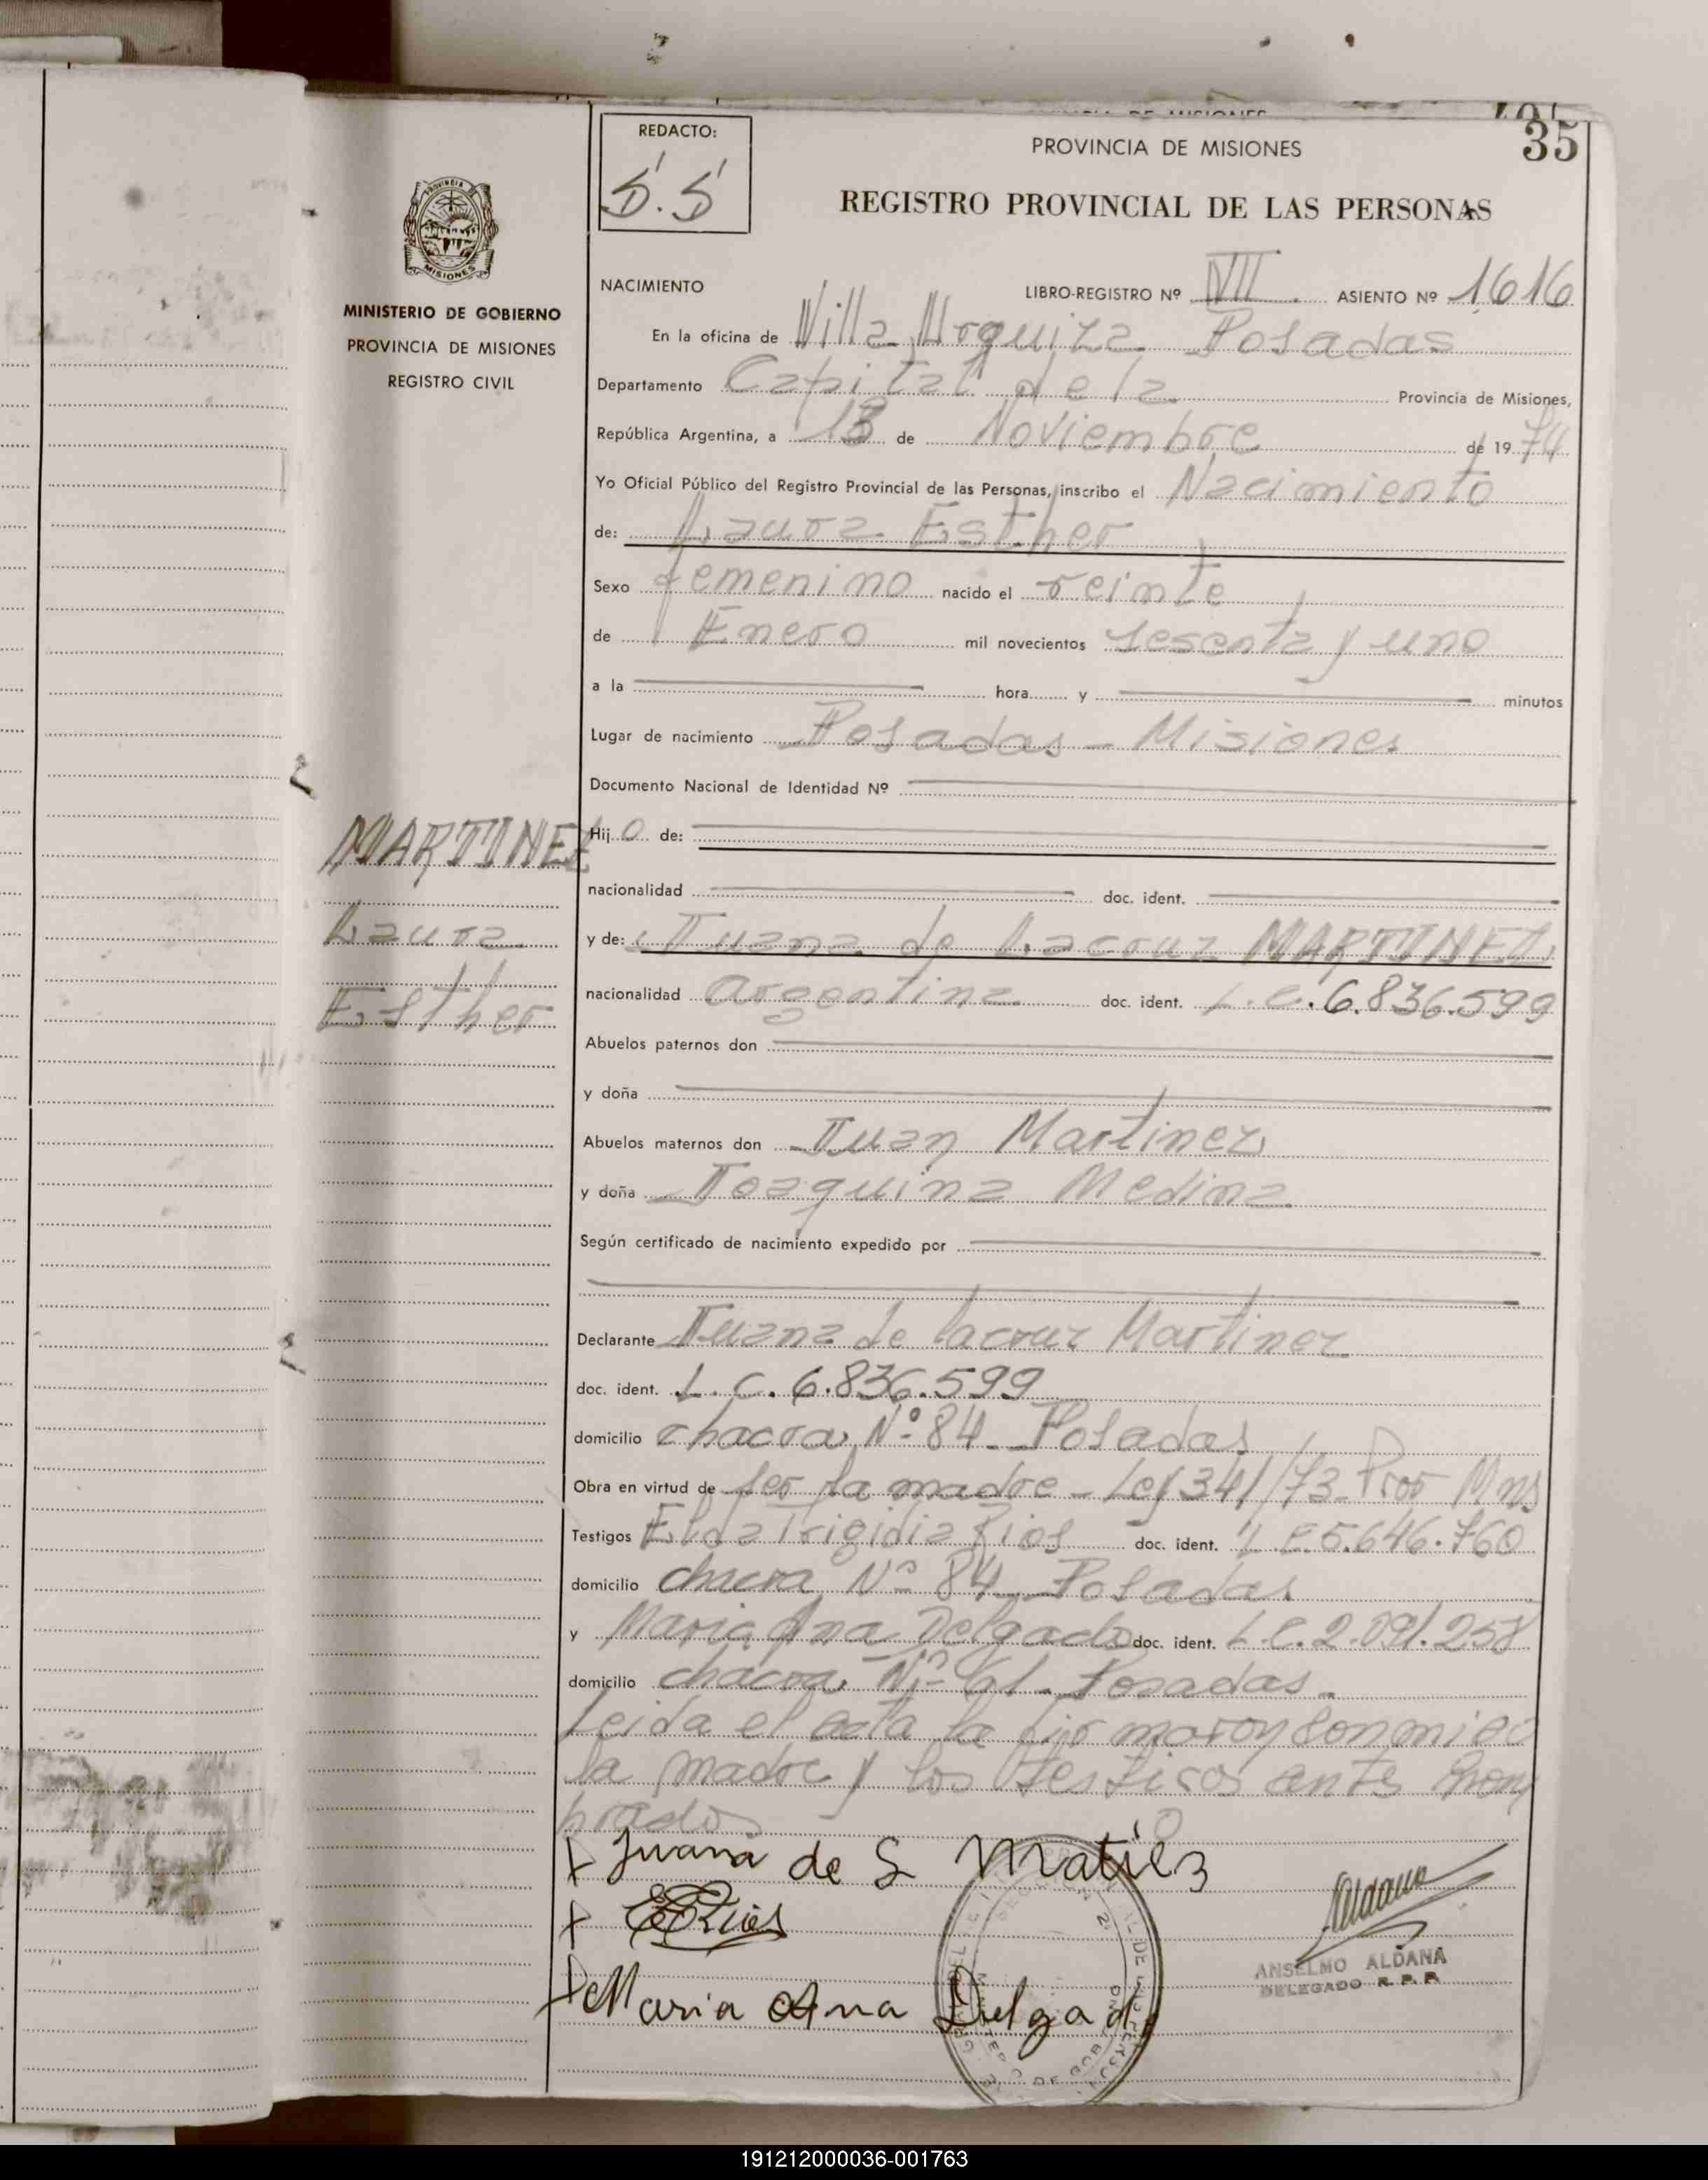 35
REDACTO:
S.S
PROVINCIA DE MISIONES
REGISTRO PROVINCIAL DE LAS PERSONAS
PROVINCIA
MISIONES
MINISTERIO DE GOBIERNO
PROVINCIA DE MISIONES
REGISTRO CIVIL
NACIMIENTO LIBRO-REGISTRO Nº VII ASIENTO Nº 1616
En la oficina de Villa Urquiza Posadas
Departamento Capital de la Provincia de Misiones,
República Argentina, a 13 de Noviembre de 1974
Yo Oficial Público del Registro Provincial de las Personas, inscribo el Nacimiento
de: Laura Esther
Sexo femenino nacido el veinte
de Enero mil novecientos sesenta y uno
a la hora y minutos
Lugar de nacimiento Posadas - Misiones
Documento Nacional de Identidad Nº
MARTINEZ
Laura
Esther
Hijo de:
nacionalidad doc. ident.
y de: Juana de Lacruz MARTINEZ
nacionalidad argentina doc. ident. L.C. 6.836.599
Abuelos paternos don
y doña
Abuelos maternos don Juan Martinez
y doña Joaquina Medina
Según certificado de nacimiento expedido por
Declarante Juana de lacruz Martinez
doc. ident. L.C. 6.836.599
domicilio chacra Nº 84 Posadas
Obra en virtud de ser la madre - Ley 341/73 Prov Mns
Testigos Rios doc. ident. 5.646.760
domicilio chacra Nº 84 Posadas
y Maria Ana Delgado doc. ident. L.C. 2.091.258
domicilio chacra Nº 61 - Posadas.
Leida el acta la
la madre y los testigos ante
brados
x Juana de S Matiez
x E Rios
x Maria Ana Delgad
Aldana
ANSELMO ALDANA
DELEGADO R.P.P.
191212000036-001763